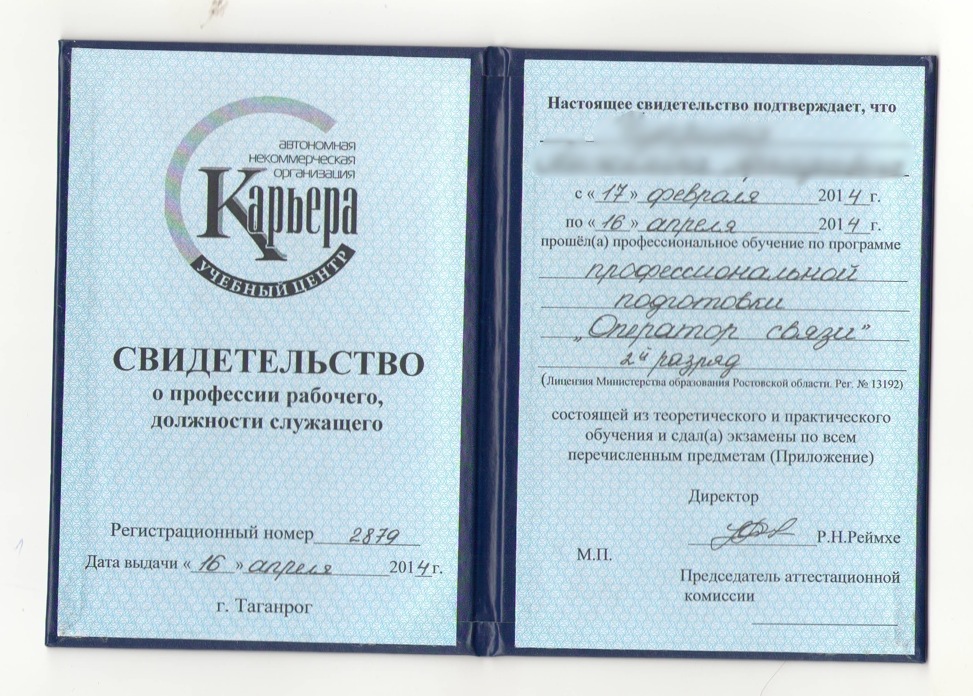 автономная
некоммерческая
организация
Карьера
УЧЕБНЫЙ ЦЕНТР
СВИДЕТЕЛЬСТВО
о профессии рабочего,
должности служащего
Регистрационный номер 2879
Дата выдачи « 16 » апреля 2014 г.
г. Таганрог
Настоящее свидетельство подтверждает, что
с « 17 » февраля 2014 г.
по « 16 » апреля 2014 г.
прошёл(а) профессиональное обучение по программе
профессиональной
подготовки
„Оператор связи”
2й разряд
(Лицензия Министерства образования Ростовской области. Рег. № 13192)
состоящей из теоретического и практического
обучения и сдал(а) экзамены по всем
перечисленным предметам (Приложение)
Директор
Р.Н.Реймхе
М.П.
Председатель аттестационной
комиссии